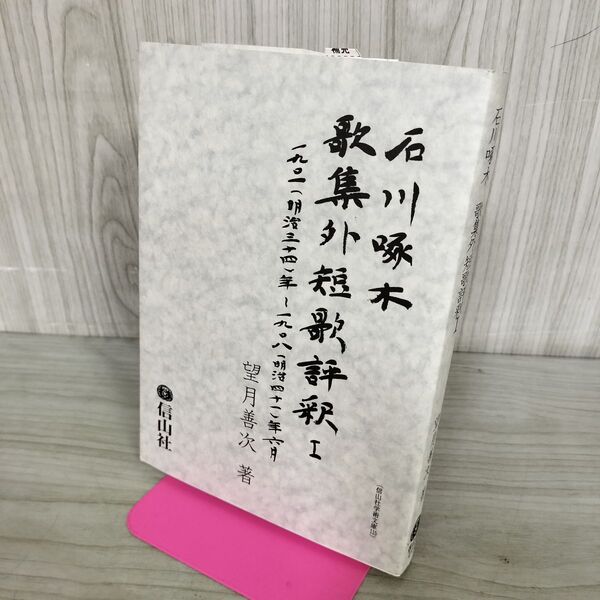 石川啄木
歌集外短歌評釈I
一九〇一(明治三十四)年〜一九〇八(明治四十一)年六月
望月善次 著
信山社
石川啄木 歌集外短歌評釈I